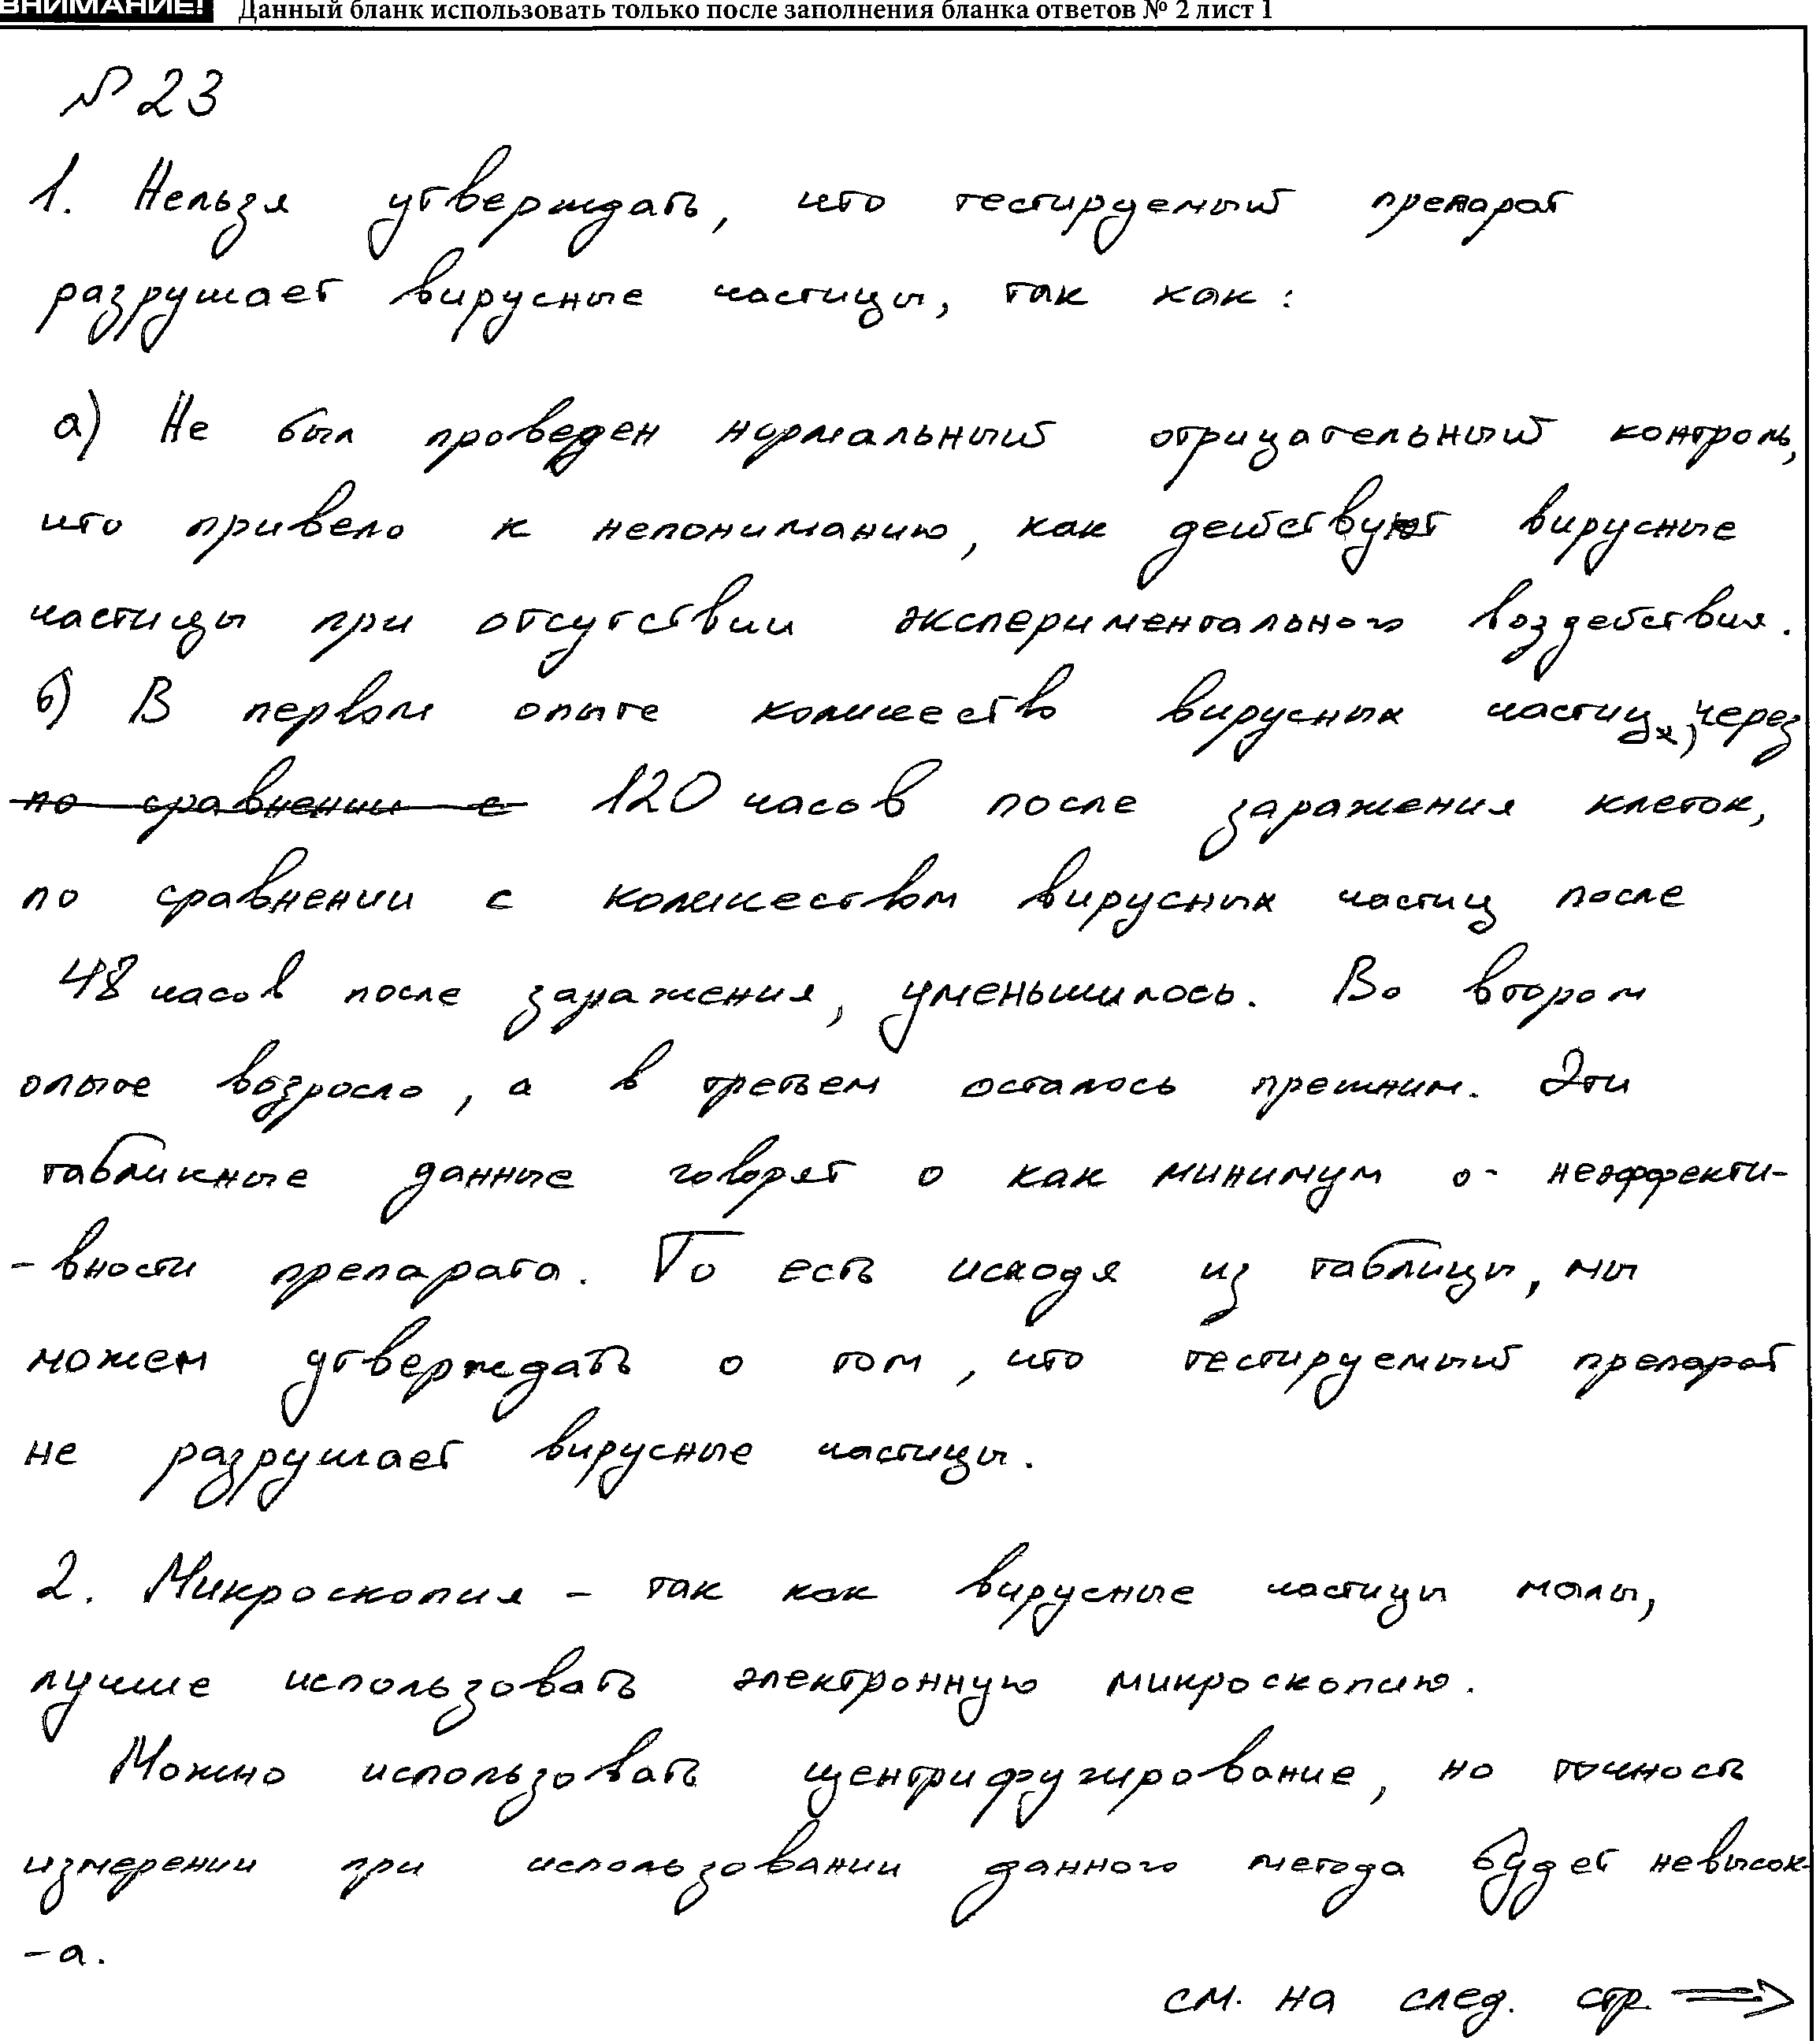 ВНИМАНИЕ! Данный бланк использовать только после заполнения бланка ответов № 2 лист 1
№ 23
1. Нельзя утверждать, что тестируемый препарат
разрушает вирусные частицы, так как:
а) Не был проведен нормальный отрицательный контроль,
что привело к непониманию, как действуют вирусные
частицы при отсутствии экспериментального воздействия.
б) В первом опыте количество вирусных частиц, через
по сравнении с 120 часов после заражения клеток,
по сравнении с количеством вирусных частиц после
48 часов после заражения, уменьшилось. Во втором
опыте возросло, а в третьем осталось прежним. Эти
табличные данные говорят о как минимум о неэффекти-
-вности препарата. То есть исходя из таблицы, мы
можем утверждать о том, что тестируемый препарат
не разрушает вирусные частицы.
2. Микроскопия - так как вирусные частицы малы,
лучше использовать электронную микроскопию.
Можно использовать центрифугирование, но точность
измерении при использовании данного метода будет невысок-
-а.
см. на след. стр ⟹